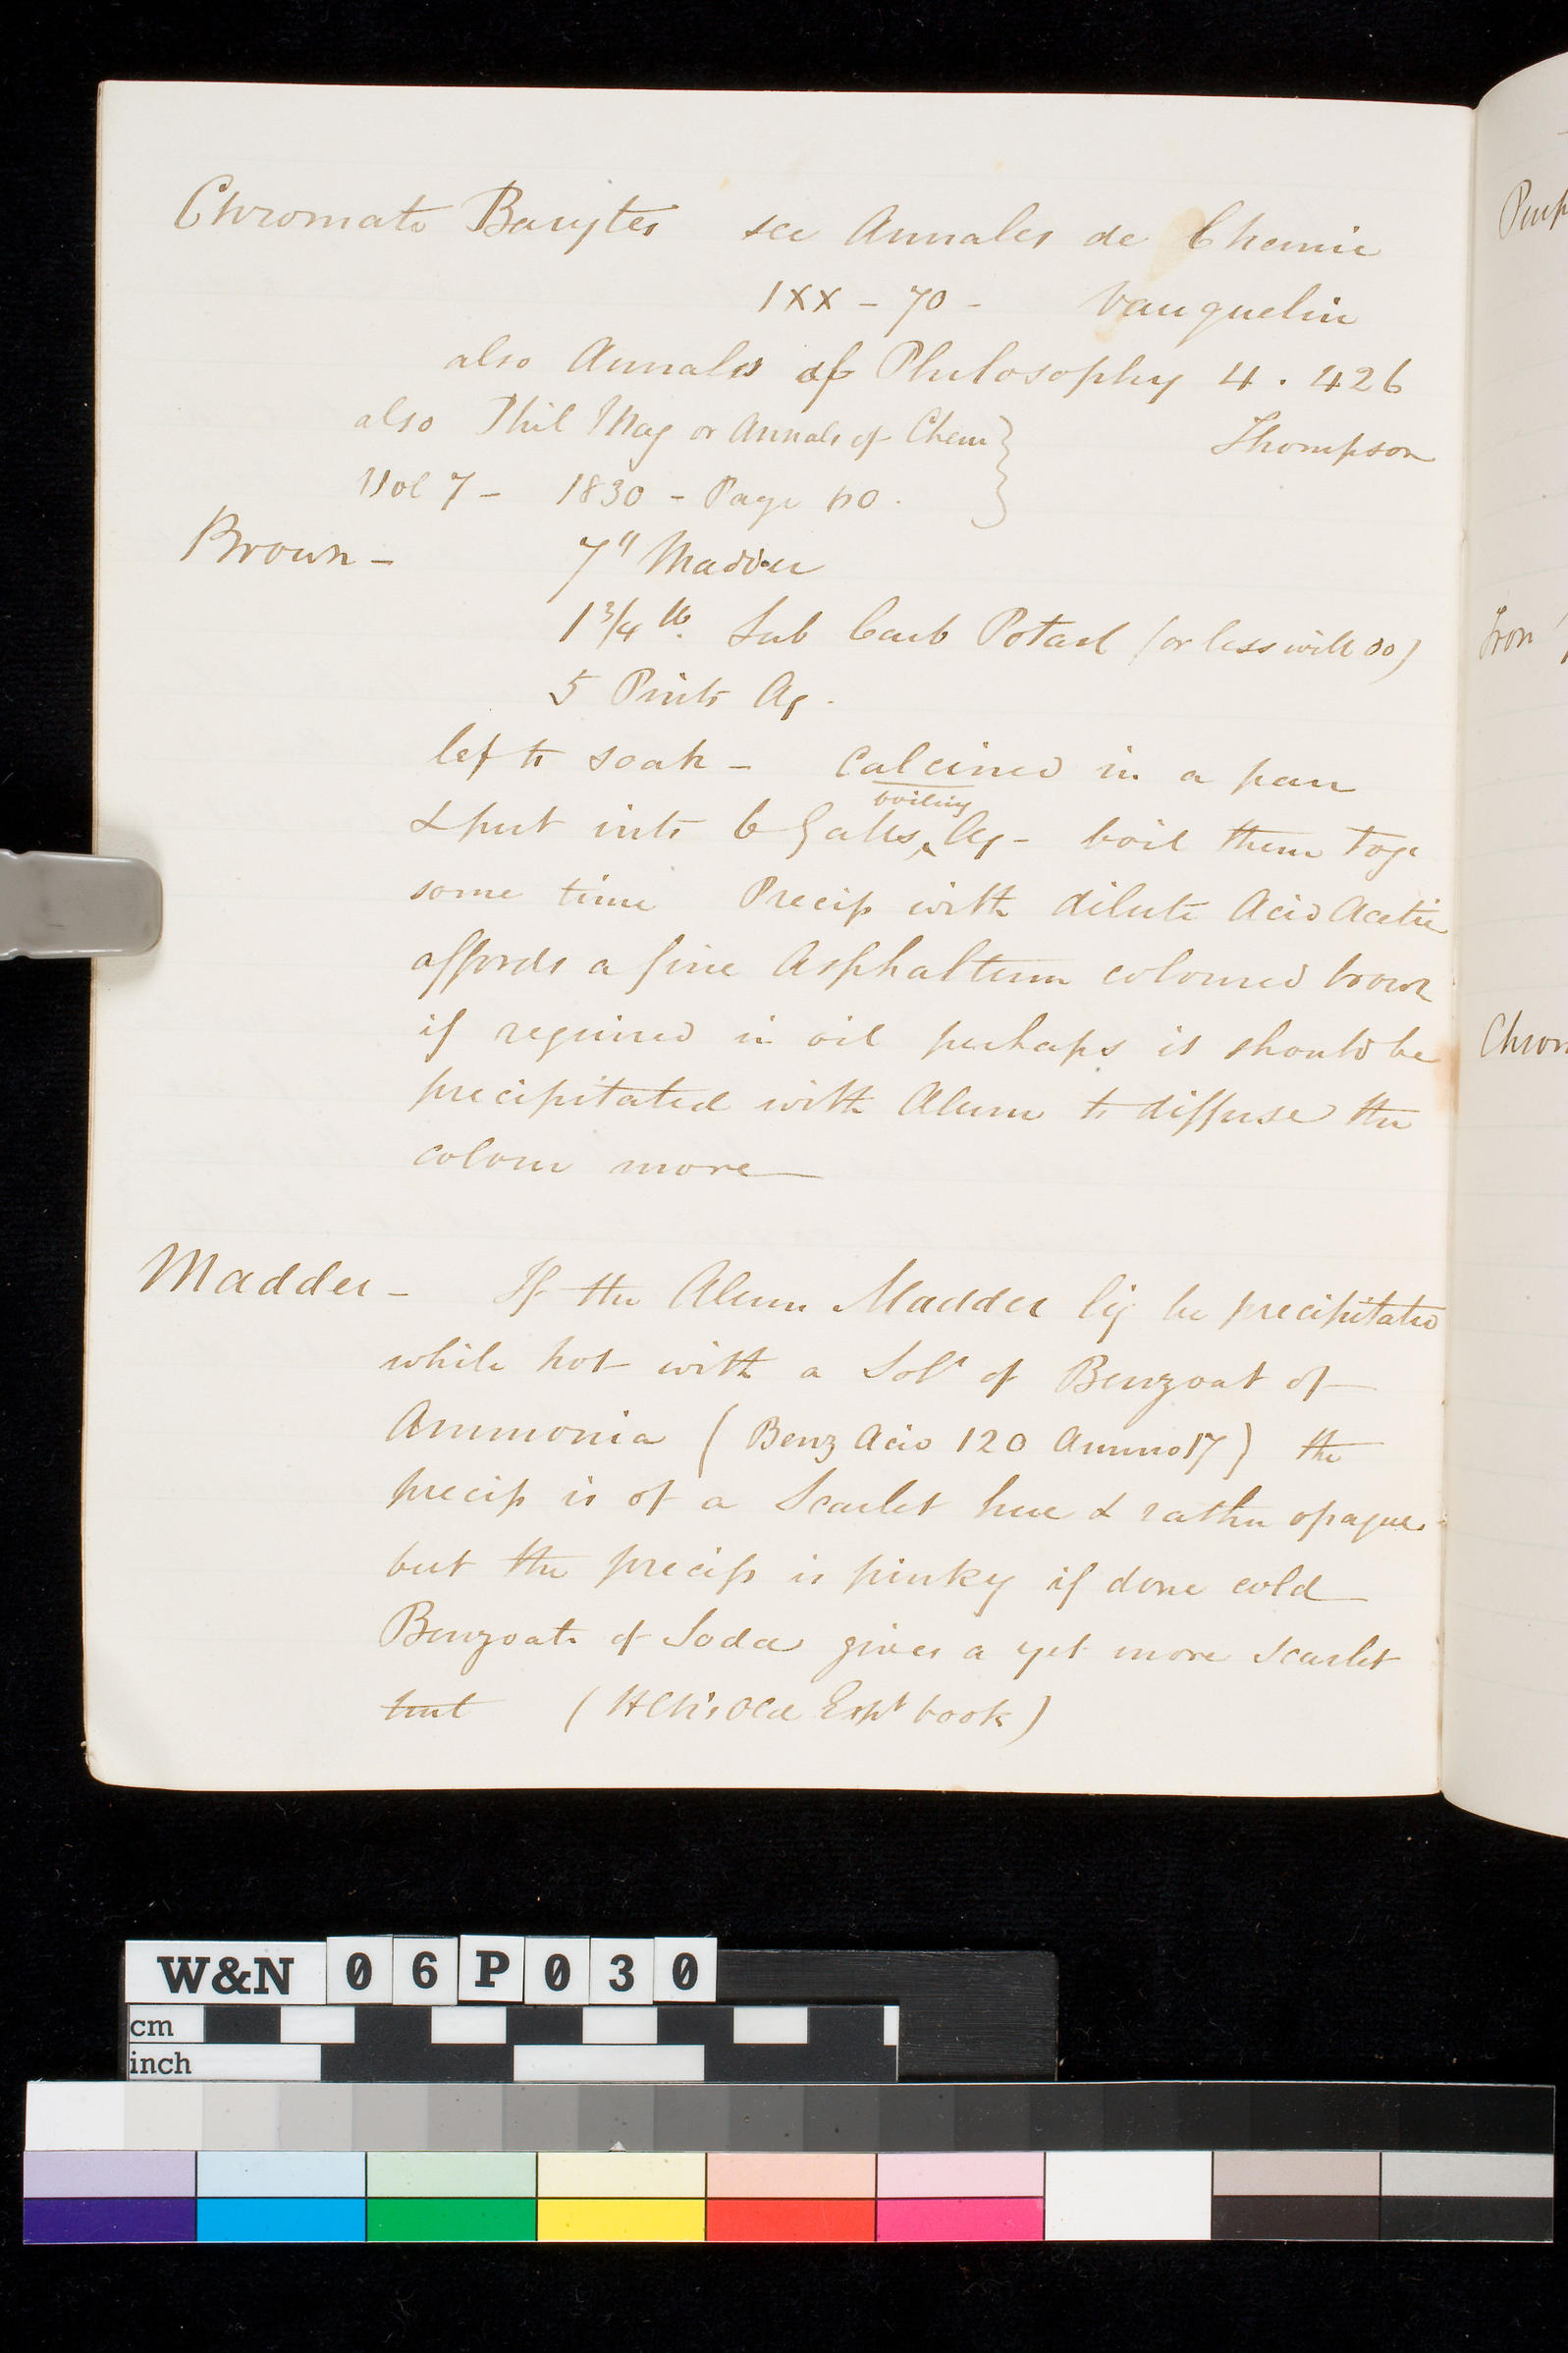 Chromate Barytes see Annales de Chemie
IXX - 70 - Vauquelin
also Annals of Philosophy 4 . 426
Thompson
also Phil Mag or Annals of Chem
Vol 7 - 1830 - Page
Brown - 7" Madder
1 3/4 lb. Sub Carb Potash (or less will do)
5 Pints Aq .
left to soak - Calcined in a pan
& put into 6 Galls boiling Aq - boil them toge
some time Precip with dilute Acid Acetic
affords a fine Asphaltum coloured brown
if required in oil perhaps it should be
precipitated with Alum to diffuse the
colour more
Madder - If the Alum Madder liq be precipitated
while hot with a Soln of Benzoat of
Ammonia ( Benz Acid 120 Ammo 17 ) the
precip is of a Scarlet hue & rather opaque
but the precip is pinky if done cold
Benzoate of Soda gives a yet more scarlet
tint ( Old Expt book )
Iron
Chrom
W&N 06P030
cm
inch